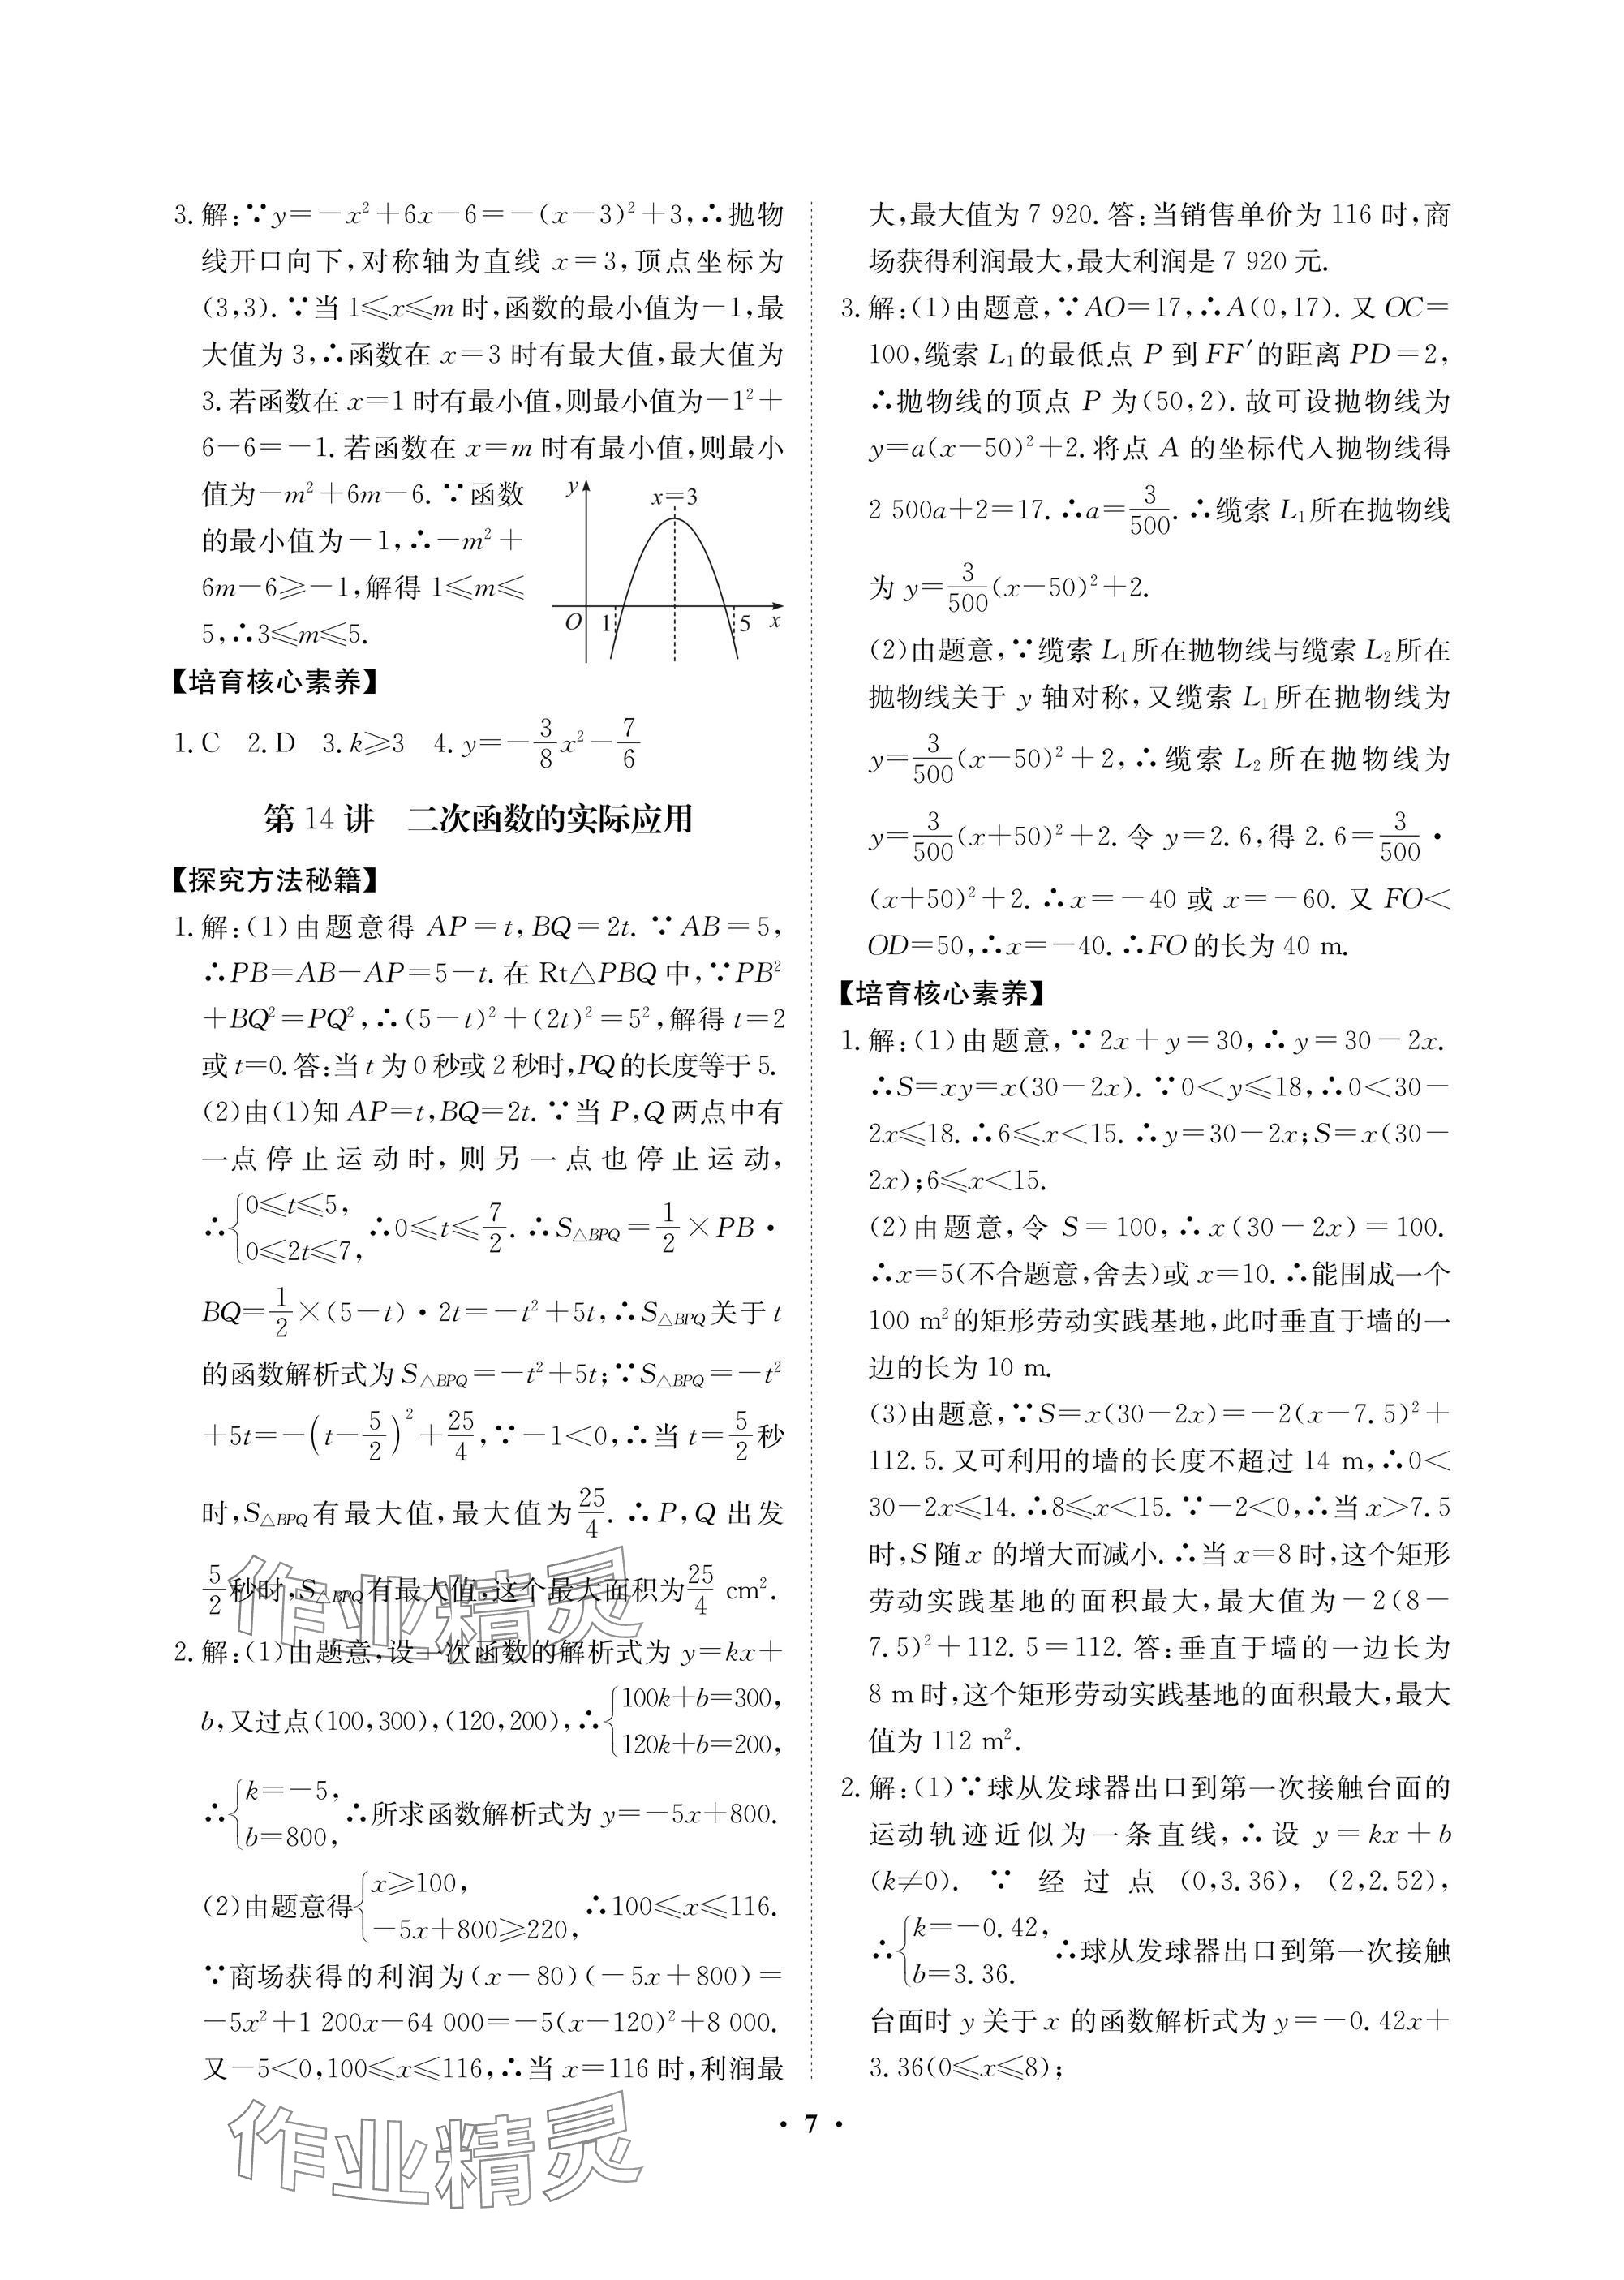 3. 解:∵y=-x²+6x-6=-(x-3)²+3,∴抛物
线开口向下,对称轴为直线 x=3,顶点坐标为
(3,3). ∵当 1⩽x⩽m 时,函数的最小值为-1,最
大值为 3,∴函数在 x=3 时有最大值,最大值为
3. 若函数在 x=1 时有最小值,则最小值为-1²+
6-6=-1. 若函数在 x=m 时有最小值,则最小
值为-m²+6m-6. ∵函数
的最小值为-1,∴-m²+
6m-6⩾-1,解得 1⩽m⩽
5,∴3⩽m⩽5.
y
x=3
O 1 5 x
【培育核心素养】
1. C 2. D 3. k⩾3 4. y=-3/8x²-7/6
第 14 讲 二次函数的实际应用
【探究方法秘籍】
1. 解:(1)由题意得 AP=t,BQ=2t. ∵AB=5,
∴PB=AB-AP=5-t. 在 Rt△PBQ 中,∵PB²
+BQ²=PQ²,∴(5-t)²+(2t)²=5²,解得 t=2
或 t=0. 答:当 t 为 0 秒或 2 秒时,PQ 的长度等于 5.
(2)由(1)知 AP=t,BQ=2t. ∵当 P,Q 两点中有
一点停止运动时,则另一点也停止运动,
∴{0⩽t⩽5, 0⩽2t⩽7, ∴0⩽t⩽7/2. ∴S△BPQ=1/2×PB·
BQ=1/2×(5-t)·2t=-t²+5t,∴S△BPQ关于 t
的函数解析式为 S△BPQ=-t²+5t;∵S△BPQ=-t²
+5t=-(t-5/2)²+25/4,∵-1<0,∴当 t=5/2秒
时,S△BPQ有最大值,最大值为25/4. ∴P,Q 出发
5/2秒时,S△BPQ有最大值,这个最大面积为25/4 cm².
2. 解:(1)由题意,设一次函数的解析式为 y=kx+
b,又过点(100,300),(120,200),∴{100k+b=300, 120k+b=200,
∴{k=-5, b=800, ∴所求函数解析式为 y=-5x+800.
(2)由题意得{x⩾100, -5x+800⩾220, ∴100⩽x⩽116.
∵商场获得的利润为(x-80)(-5x+800)=
-5x²+1 200x-64 000=-5(x-120)²+8 000.
又-5<0,100⩽x⩽116,∴当 x=116 时,利润最
大,最大值为 7 920. 答:当销售单价为 116 时,商
场获得利润最大,最大利润是 7 920 元.
3. 解:(1)由题意,∵AO=17,∴A(0,17). 又 OC=
100,缆索 L₁的最低点 P 到 FF′的距离 PD=2,
∴抛物线的顶点 P 为(50,2). 故可设抛物线为
y=a(x-50)²+2. 将点 A 的坐标代入抛物线得
2 500a+2=17. ∴a=3/500. ∴缆索 L₁所在抛物线
为 y=3/500(x-50)²+2.
(2)由题意,∵缆索 L₁所在抛物线与缆索 L₂所在
抛物线关于 y 轴对称,又缆索 L₁所在抛物线为
y=3/500(x-50)²+2,∴缆索 L₂所在抛物线为
y=3/500(x+50)²+2. 令 y=2. 6,得 2. 6=3/500·
(x+50)²+2. ∴x=-40 或 x=-60. 又 FO<
OD=50,∴x=-40. ∴FO 的长为 40 m.
【培育核心素养】
1. 解:(1)由题意,∵2x+y=30,∴y=30-2x.
∴S=xy=x(30-2x). ∵0<y⩽18,∴0<30-
2x⩽18. ∴6⩽x<15. ∴y=30-2x;S=x(30-
2x);6⩽x<15.
(2)由题意,令 S=100,∴x(30-2x)=100.
∴x=5(不合题意,舍去)或 x=10. ∴能围成一个
100 m²的矩形劳动实践基地,此时垂直于墙的一
边的长为 10 m.
(3)由题意,∵S=x(30-2x)=-2(x-7. 5)²+
112. 5. 又可利用的墙的长度不超过 14 m,∴0<
30-2x⩽14. ∴8⩽x<15. ∵-2<0,∴当 x>7. 5
时,S 随 x 的增大而减小. ∴当 x=8 时,这个矩形
劳动实践基地的面积最大,最大值为-2(8-
7. 5)²+112. 5=112. 答:垂直于墙的一边长为
8 m 时,这个矩形劳动实践基地的面积最大,最大
值为 112 m².
2. 解:(1)∵球从发球器出口到第一次接触台面的
运动轨迹近似为一条直线,∴设 y=kx+b
(k≠0). ∵经过点(0,3. 36),(2,2. 52),
∴{k=-0. 42, b=3. 36. ∴球从发球器出口到第一次接触
台面时 y 关于 x 的函数解析式为 y=-0. 42x+
3. 36(0⩽x⩽8);
· 7 ·
作业精灵
作业精灵